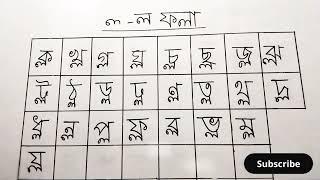 ল -ল ফলা
ক্ল খ্ল গ্ল ঘ্ল চ্ল ছ্ল জ্ল ঝ্ল
ট্ল ঠ্ল ড্ল ঢ্ল ণ্ল ত্ল থ্ল দ্ল
ধ্ল ন্ল প্ল ফ্ল ব্ল ভ্ল ম্ল
Subscribe